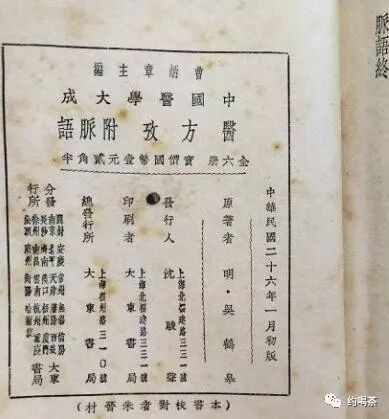 脈語終
曹炳章主編
中國醫學大成
醫方攷附脈語
全六册 實價國幣壹元貳角半
中華民國二十六年一月初版
原著者 明·吳鶴皋
發行人 上海北福建路三三一號 沈駿聲
印刷者 上海北福建路三三一號 大東書局
總發行所 上海福州路三一〇號 大東書局
分發行所 大東書局
（本書校對者朱晉材）
约喝茶